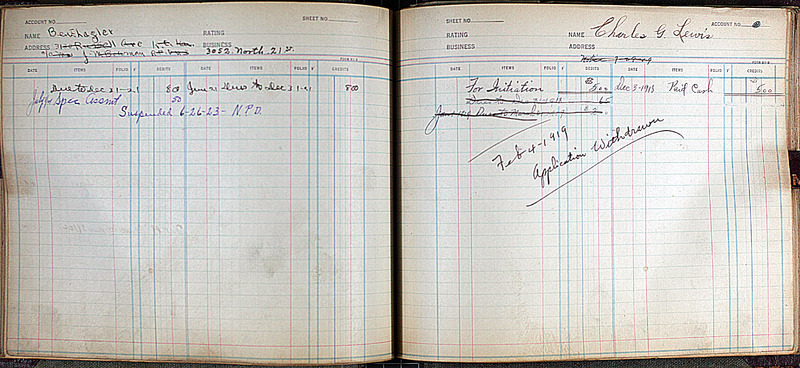 ACCOUNT NO.
SHEET NO.
NAME
RATING
ADDRESS
BUSINESS 3052 North 21 st.
DATE ITEMS FOLIO DEBITS DATE ITEMS FOLIO CREDITS
Due to Dec 31-21 800 Jun 21 Dues to Dec 31-21 800
Spec Assmt 50
Suspended 6-26-23- N.P.D.
SHEET NO.
ACCOUNT NO.
RATING NAME Charles G. Lewis
BUSINESS ADDRESS
DATE ITEMS FOLIO DEBITS DATE ITEMS FOLIO CREDITS
For Initiation 500 Dec 3-1918 Paid Cash 500
Feb 4-1919
Application Withdrawn